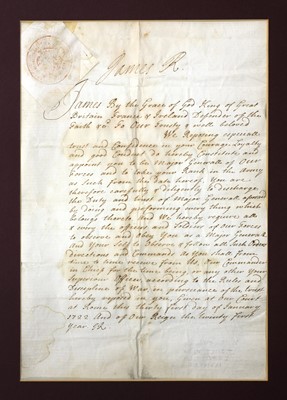 James R.
James By the Grace of God King of Great
Britain France & Ireland Defender of the
Faith &c To Our trusty & well beloved
We Reposing especiall
trust and Confidence in your Courage Loyalty
and good Conduct do hereby Constitute and
appoint you to be Major Generall of Our
Forces and to take your Rank in the Army
as such from the Date hereof. You are
therefore carefully & diligently to discharge
the Duty and trust of Major Generall
by doing and performing every thing which
belongs thereto And We hereby require all
& every the officers and soldiers of our Forces
to observe and obey you as a Major Generall
And Your self to Observe & follow all such Orders
directions and Commands as you shall from
time to time receive from Us, Our Commander
in Chief for the time being or any other Your
Superiour Officer according to the Rules and
Discipline of War, in pursuance of the trust
hereby reposed in you. Given at Our Court
at Rome this thirty first day of January
1722 And of Our Reign the Twenty First
Year